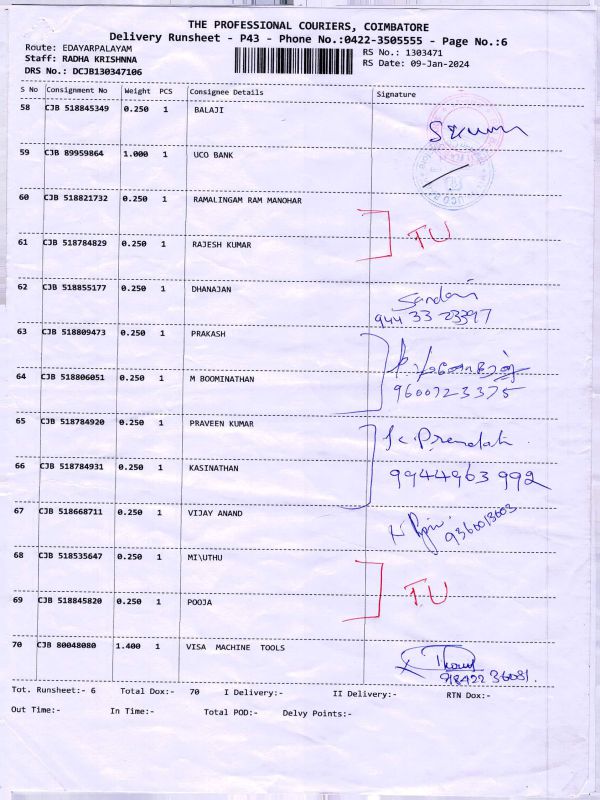 THE PROFESSIONAL COURIERS, COIMBATORE
Delivery Runsheet - P43 - Phone No.:0422-3505555 - Page No.:6
Route: EDAYARPALAYAM
RS No.: 1303471
Staff: RADHA KRISHNNA
RS Date: 09-Jan-2024
DRS No.: DCJB130347106
S No Consignment No Weight PCS Consignee Details Signature
58 CJB 518845349 0.250 1 BALAJI
59 CJB 89959864 1.000 1 UCO BANK
60 CJB 518821732 0.250 1 RAMALINGAM RAM MANOHAR
TU
61 CJB 518784829 0.250 1 RAJESH KUMAR
62 CJB 518855177 0.250 1 DHANAJAN
944 33 23397
63 CJB 518809473 0.250 1 PRAKASH
64 CJB 518806051 0.250 1 M BOOMINATHAN
9600723375
65 CJB 518784920 0.250 1 PRAVEEN KUMAR
66 CJB 518784931 0.250 1 KASINATHAN
9944963 992
67 CJB 518668711 0.250 1 VIJAY ANAND
9360013603
68 CJB 518535647 0.250 1 MI\UTHU
T.U
69 CJB 518845820 0.250 1 POOJA
70 CJB 80048080 1.400 1 VISA MACHINE TOOLS
Tot. Runsheet:- 6 Total Dox:- 70 I Delivery:- II Delivery:- RTN Dox:-
Out Time:- In Time:- Total POD:- Delvy Points:-